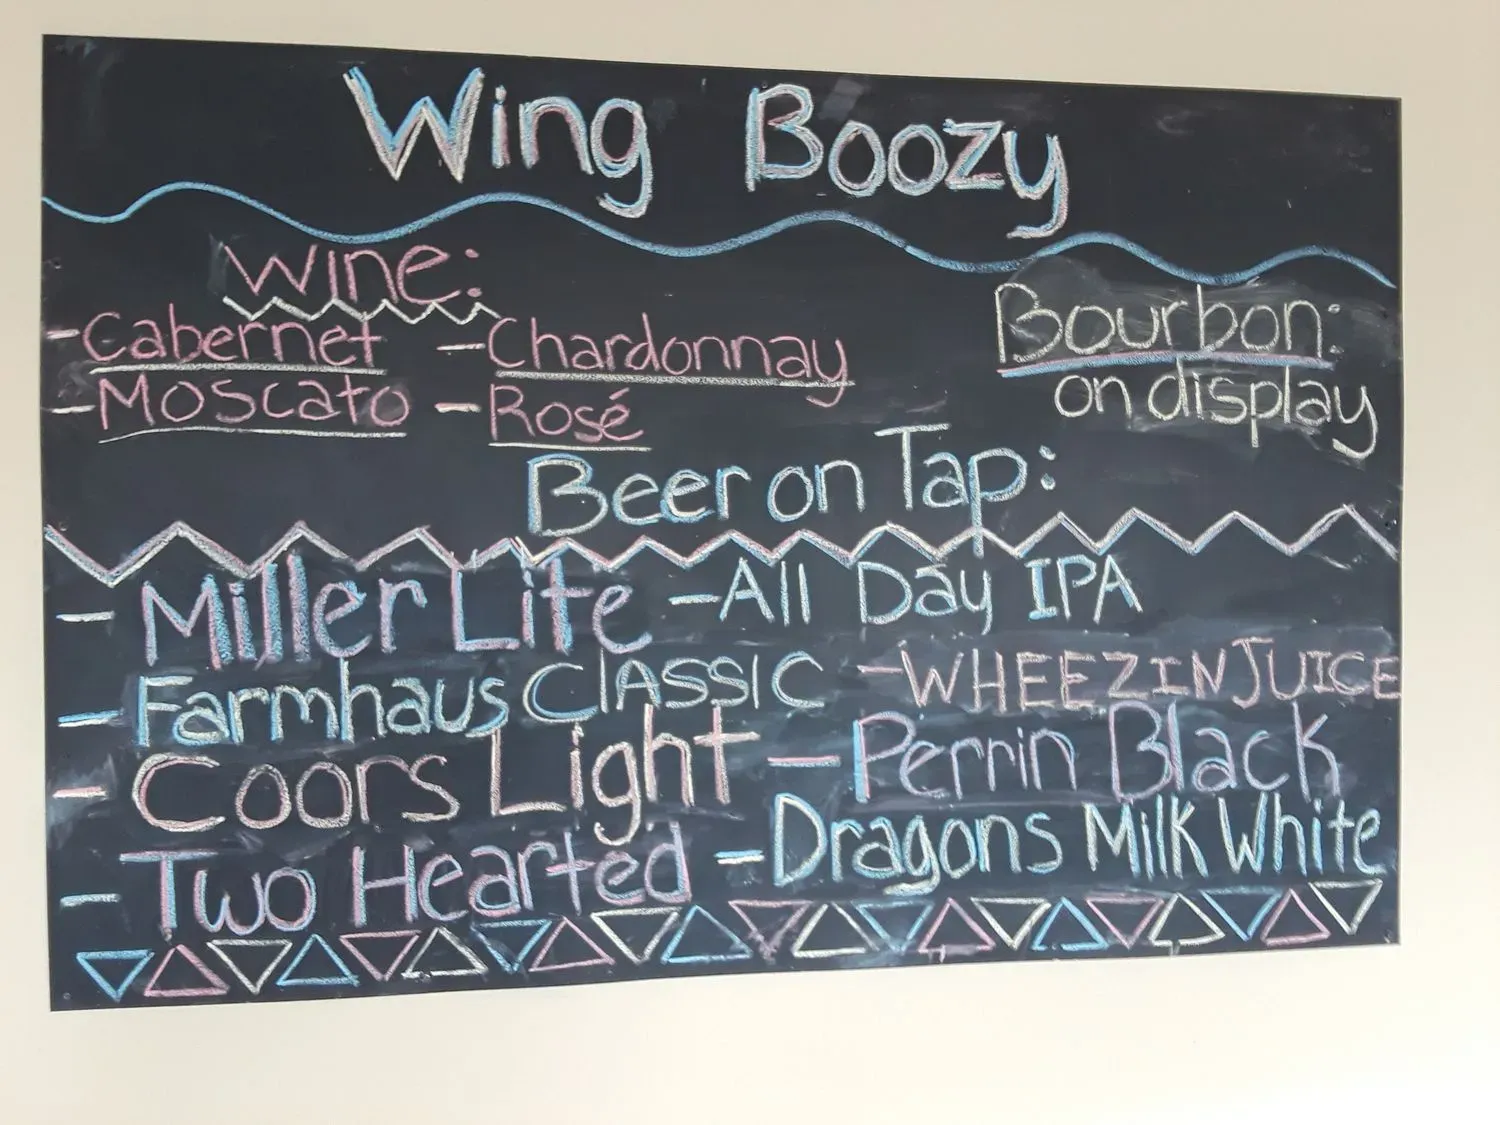 Wing Boozy
Wine:
-Cabernet -Chardonnay
-Moscato -Rosé
Bourbon:
on display
Beer on Tap:
-Miller Lite -All Day IPA
-Farmhaus CLASSIC -WHEEZINJUICE
-Coors Light -Perrin Black
-Two Hearted -Dragons Milk White